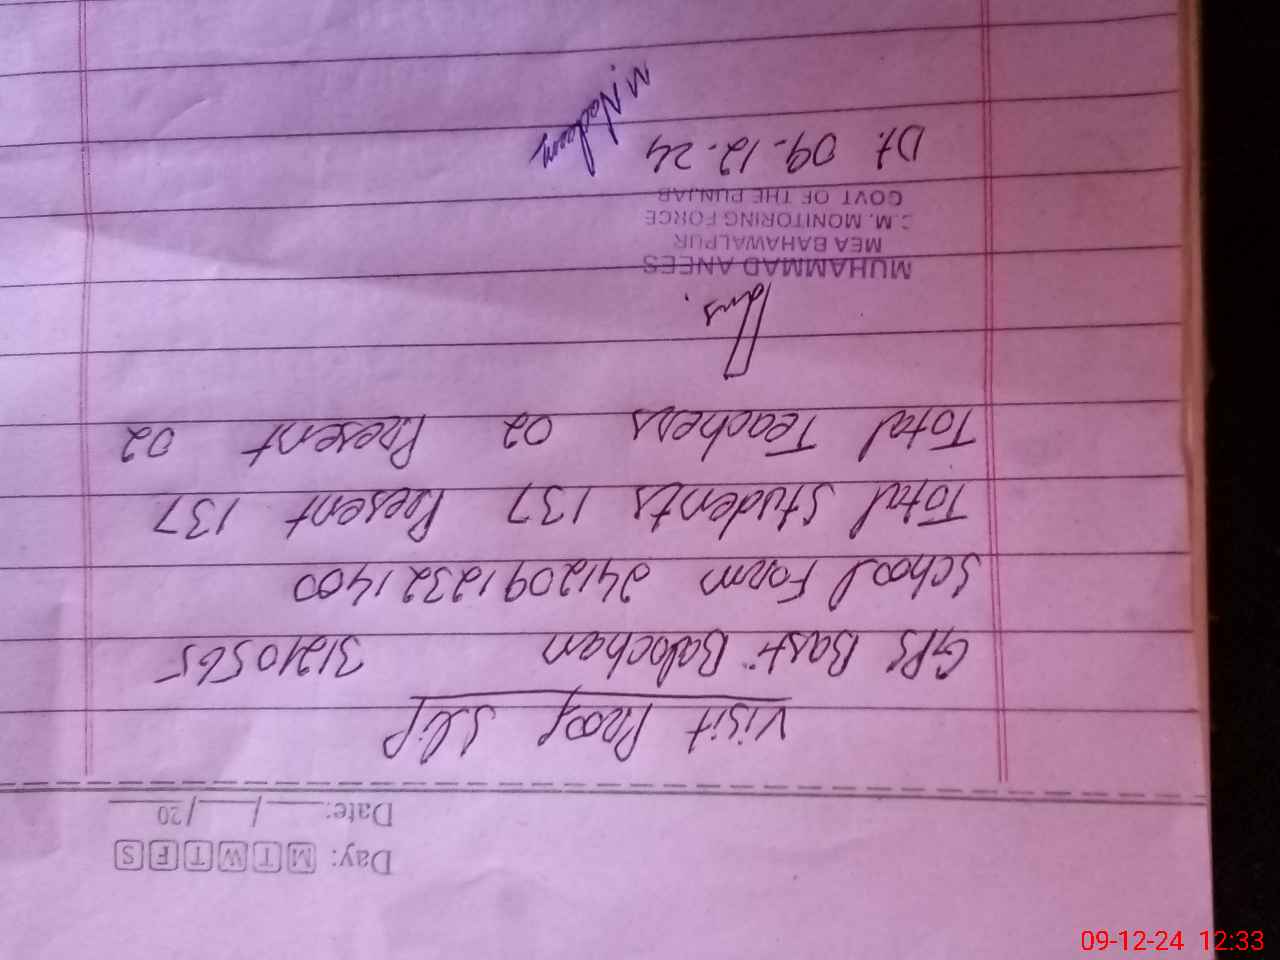 Day: M T W T F S
Date: __/__/20__
Visit Proof Slip
GPS Basti Balochan 31210565
School Form 24120912321400
Total Students 137 Present 137
Total Teachers 02 Present 02
MUHAMMAD ANEES
MEA BAHAWALPUR
C.M. MONITORING FORCE
GOVT OF THE PUNJAB
Dt. 09-12-24
M Nadeem
09-12-24 12:33